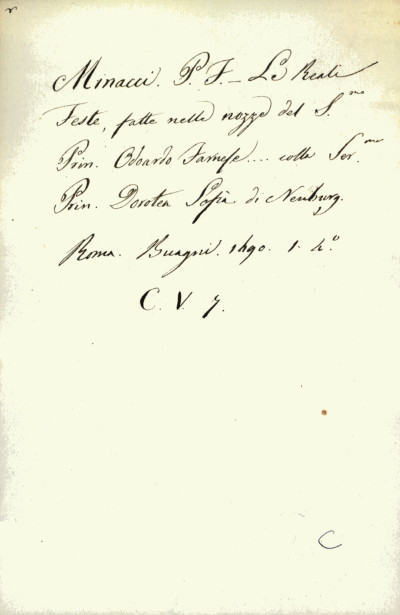 Minacci. P. F. – Le Reali
Feste, fatte nelle nozze del S.mo
Prin. Odoardo Farnese.... colla Ser.ma
Prin. Dorotea Sofia di Neuburg.
Roma. Buagni. 1690. 1. 4.º
C. V. 7.
C